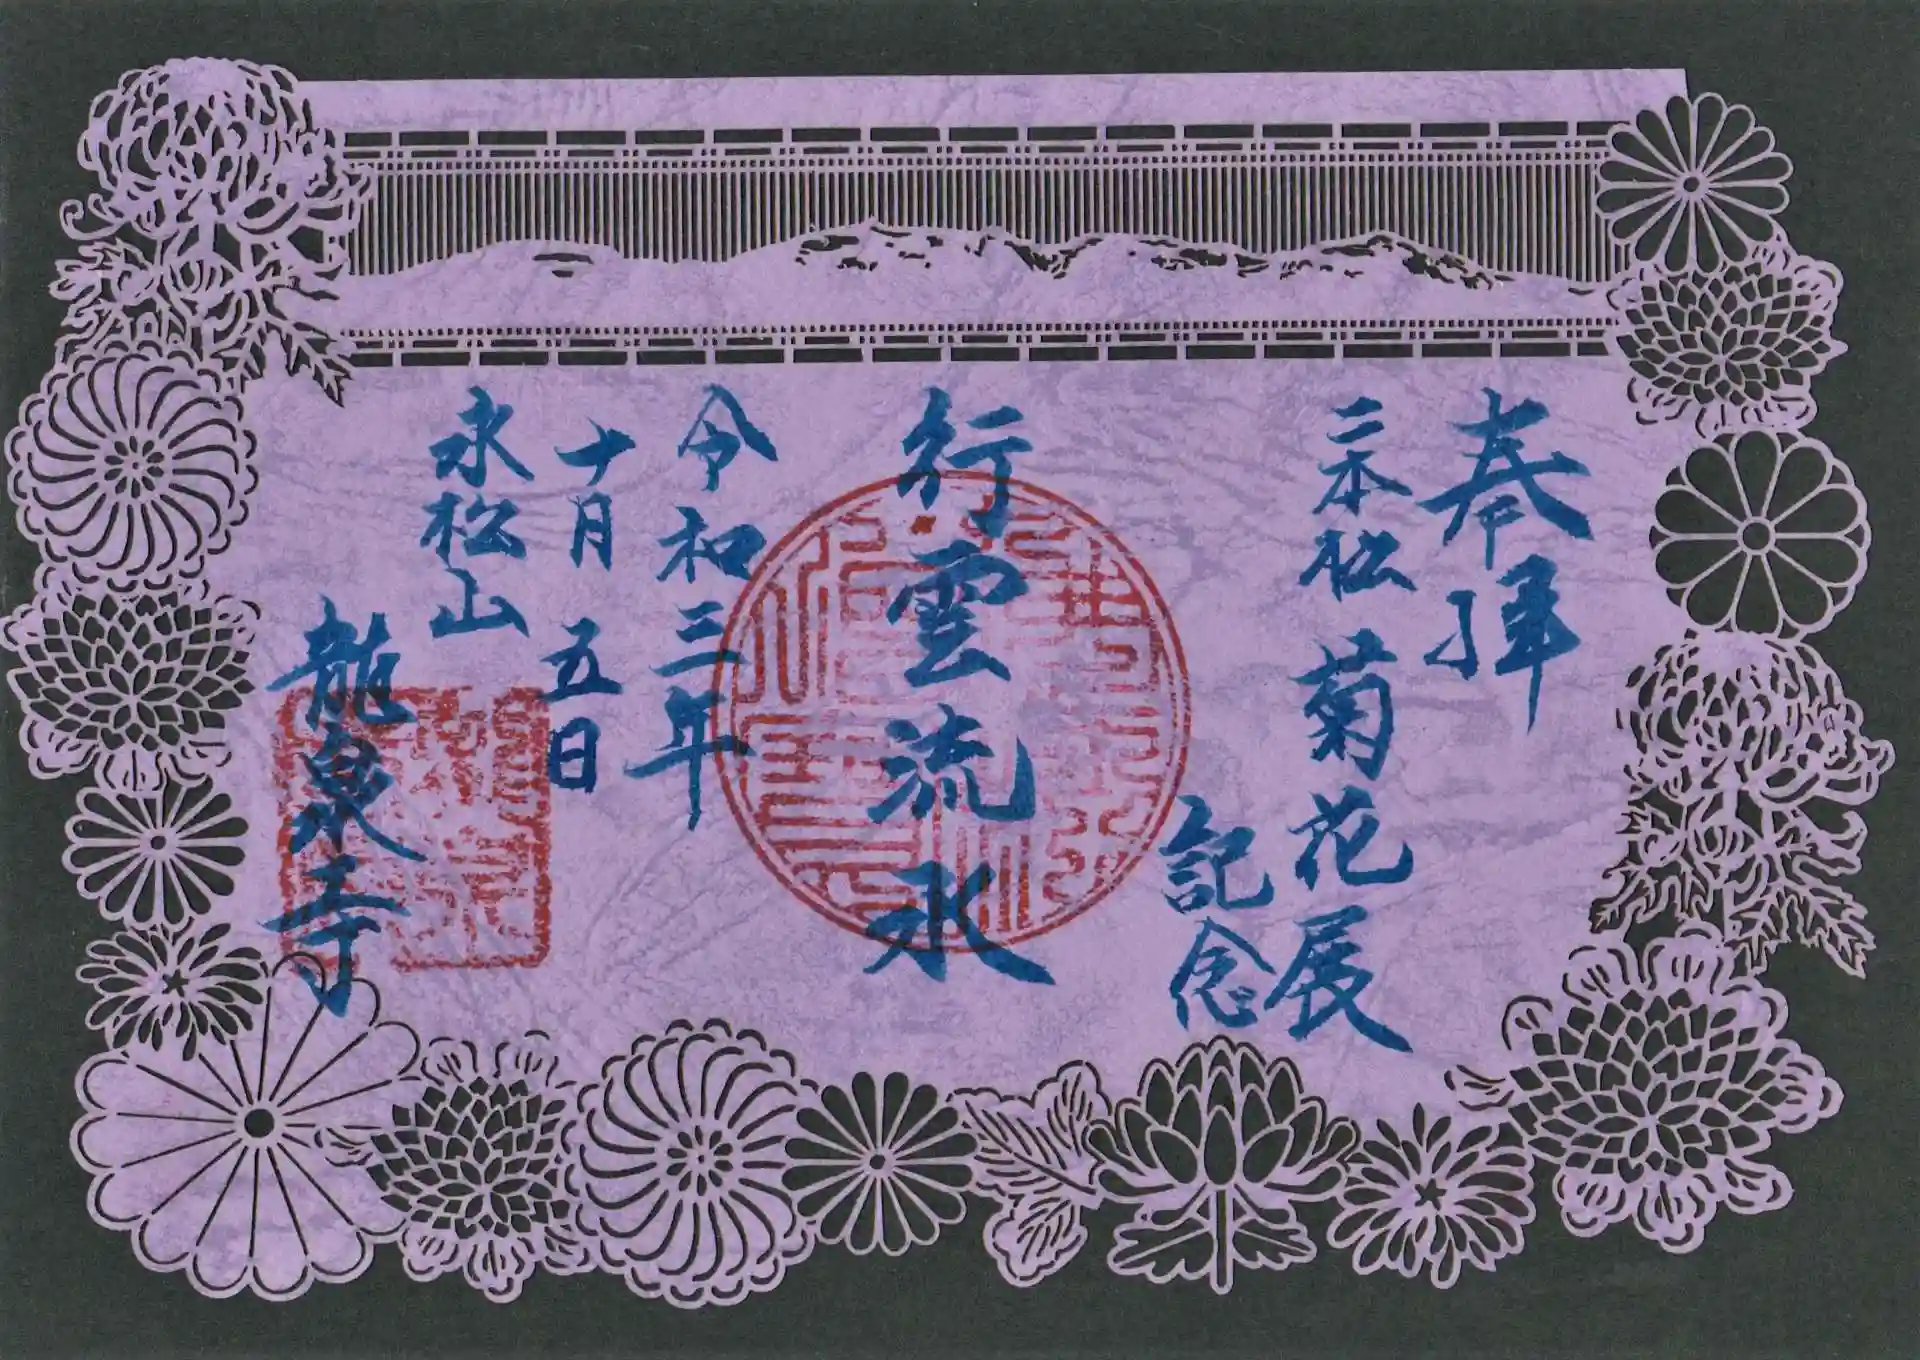 奉拝
二本松 菊花展
記念
行雲流水
令和三年
十月五日
永松山
龍泉寺